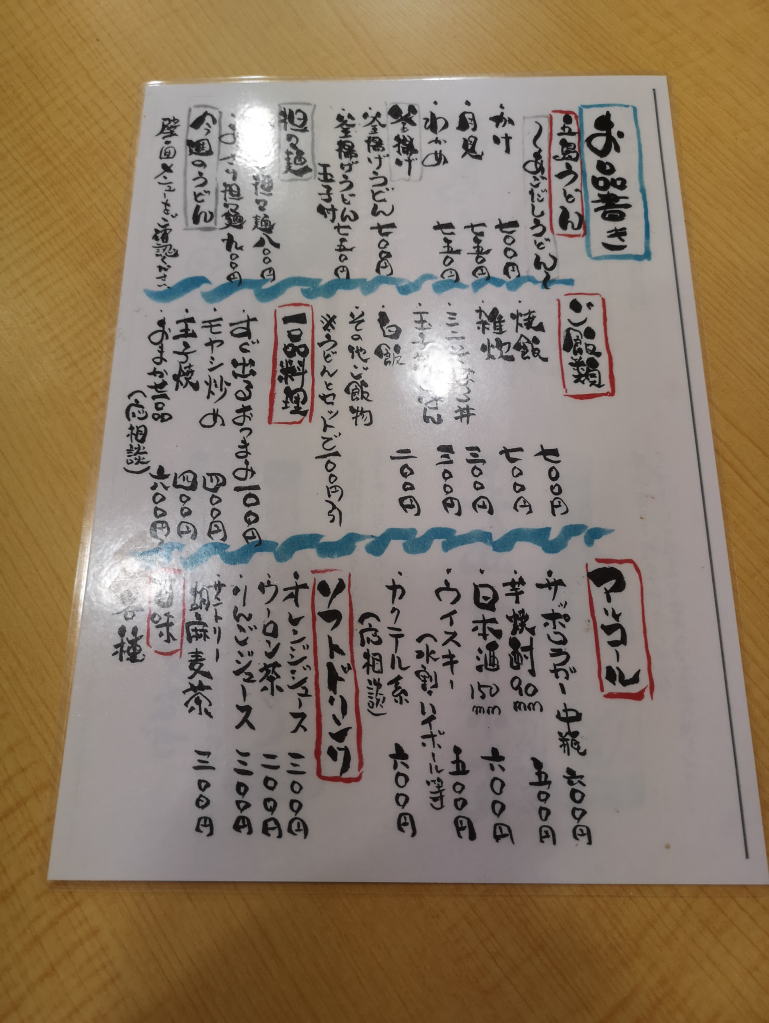 お品書き
五島うどん
〜あごだしうどん〜
・かけ 七〇〇円
・月見 七五〇円
・わかめ 七五〇円
釜揚げ
・釜揚げうどん 七〇〇円
・釜揚げうどん 七五〇円
玉子付
担々麺
担々麺 八〇〇円
担々麺 九〇〇円
今週のうどん
壁面メニューをご確認ください
ご飯類
・焼飯 七〇〇円
・雑炊 七〇〇円
・ミニ 丼 三〇〇円
・玉子 はん 三〇〇円
・白飯 二〇〇円
・その他ご飯物
※うどんとセットで一〇〇円引
一品料理
・すぐ出るおつまみ 一〇〇円
・モヤシ炒め 四〇〇円
・玉子焼 四〇〇円
・おまかせ一品 六〇〇円
(応相談)
アルコール
・サッポロラガー中瓶 六〇〇円
・芋焼酎90mm 五〇〇円
・日本酒150mm 六〇〇円
・ウイスキー 五〇〇円
(水割・ハイボール等)
・カクテル系 六〇〇円
(応相談)
ソフトドリンク
・オレンジジュース 三〇〇円
・ウーロン茶 二〇〇円
・りんごジュース 三〇〇円
・サントリー
胡麻麦茶 三〇〇円
各種